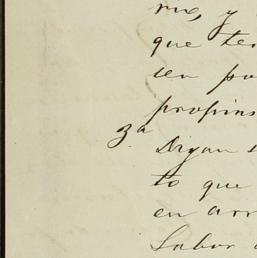 rix, y
que ten
sen po
propins
3a
Digan s
to que
en arr
Labor